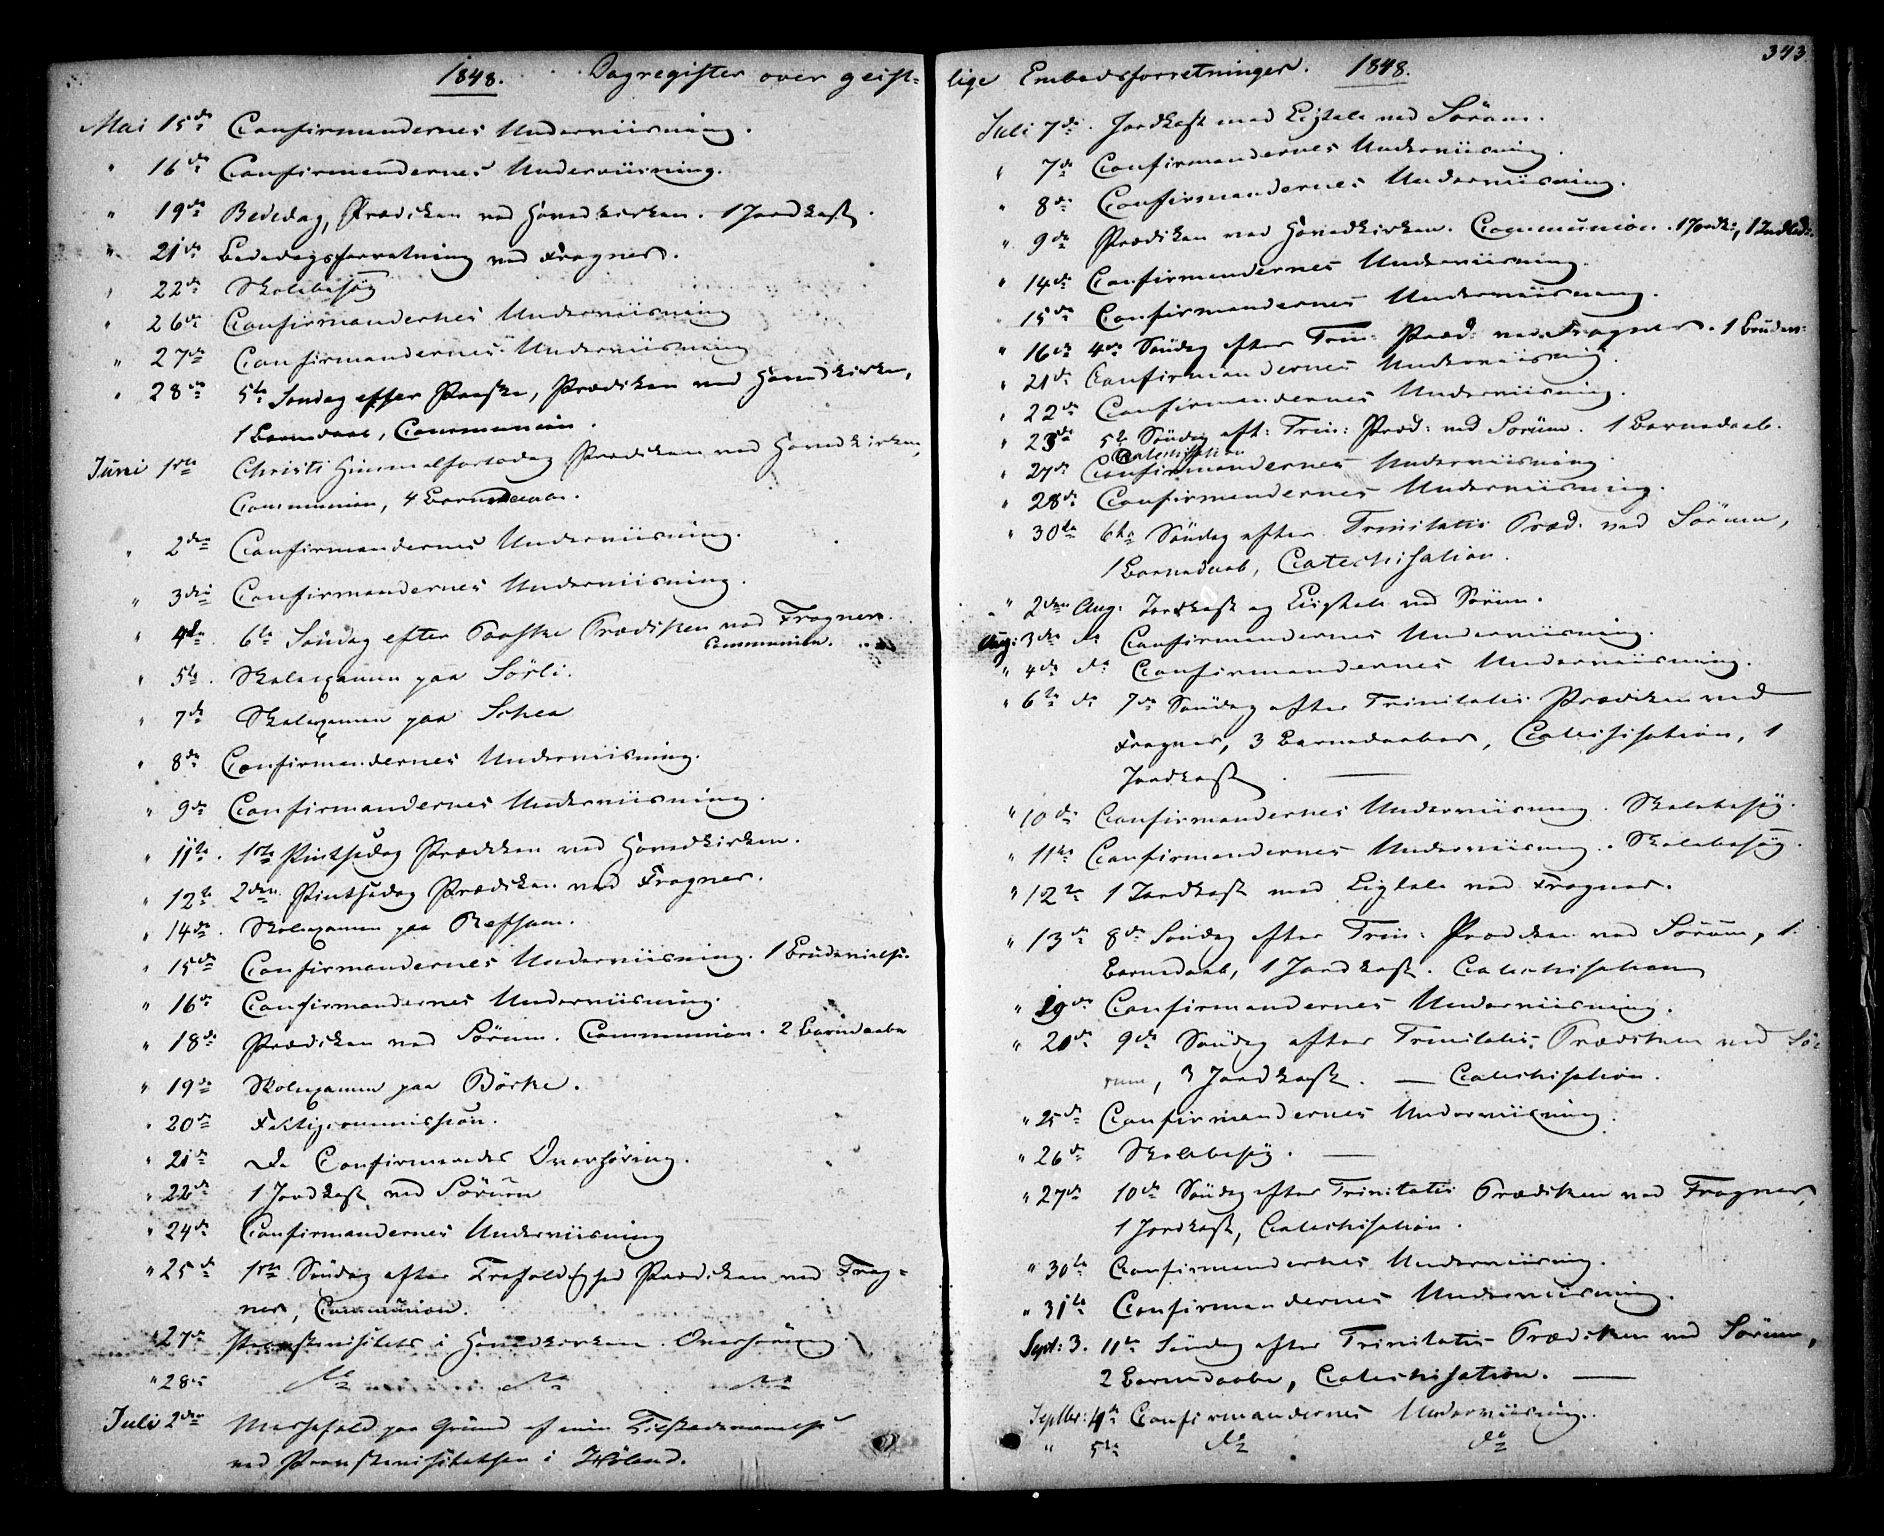 1848. Dagregister over geist-
Mai 15de Confirmandernes Underviisning.
" 16de Confirmandernes Underviisning.
" 19de Bededag, Prædiken ved Hovedkirken. 1 Jordkast.
" 21de Bededagsforretning ved Frogner.
" 22de Skolebesög
" 26de Confirmandernes Underviisning
" 27de Confirmandernes Underviisning
" 28de 5te Søndag efter Paaske, Prædiken ved Hovedkirken,
1 Barnedaab, Communion.
Juni 1ste Christi Himmelfartsdag Prædiken ved Hovedkirken,
Communion, 4 Barnedaab.
" 2den Confirmandernes Underviisning.
" 3die Confirmandernes Underviisning.
" 4de 6te Søndag efter Paaske Prædiken ved Frogner.
Communion.
" 5te. Skolexamen paa Sörli.
" 7de Skolexamen paa Schea
" 8de Confirmandernes Underviisning.
" 9de Confirmandernes Underviisning.
" 11te. 1ste Pintsedag Prædiken ved Hovedkirken.
" 12te 2den Pintsedag Prædiken ved Frogner.
" 14de. Skolexamen paa Refsum.
" 15de Confirmandernes Underviisning. 1 Brudevielse.
" 16de Confirmandernes Underviisning.
" 18de Prædiken ved Sörum. Communion. 2 Barnedaabe
" 19de Skolexamen paa Börke.
" 20de Fattigcommission.
" 21de De Confirmeredes Overhöring.
" 22de 1 Jordkast ved Sörum
" 24de Confirmandernes Underviisning
" 25de 1ste Søndag efter Trefoldighed Prædiken ved Frog-
ner, Communion.
" 27de Provstevisitats i Hovedkirken. Overhöring.
" 28de do do do
Juli 2den Messefald paa Grund af min Tilstedeværelse
ved Provstevisitatsen i Höland.
lige Embedsforretninger. 1848. 343.
Juli 7de. Jordkast med Ligtale ved Sörum.
" 7de Confirmandernes Underviisning.
" 8de Confirmandernes Underviisning.
" 9de Prædiken ved Hovedkirken. Communion. 1 Jordk:, 1 Indled:
" 14de Confirmandernes Underviisning.
" 15de Confirmandernes Underviisning.
" 16de 4de Søndag efter Trin: Præd: ved Frogner. 1 Brudev:
" 21de Confirmandernes Underviisning.
" 22de Confirmandernes Underviisning.
" 23de 5te Søndag eft: Trin: Præd: ved Sörum. 1 Barnedaab.
Catechisation
" 27de Confirmandernes Underviisning.
" 28de Confirmandernes Underviisning.
" 30te 6te Søndag efter Trinitatis Præd: ved Sörum,
1 Barnedaab, Catechisation.
" 2den Aug: Jordkast og Ligtale ved Sörum.
Aug: 3die do Confirmandernes Underviisning.
" 4de do Confirmandernes Underviisning.
" 6te do 7de Søndag efter Trinitatis Prædiken ved
Frogner, 3 Barnedaaber, Catechisation, 1
Jordkast.
" 10de Confirmandernes Underviisning. Skolebesög.
" 11te Confirmandernes Underviisning. Skolebesög.
" 12te 1 Jordkast med Ligtale ved Frogner.
" 13de 8de Søndag efter Trin: Prædiken ved Sörum, 1
Barnedaab, 1 Jordkast. Catechisation
" 19de Confirmandernes Underviisning.
" 20de 9de Søndag efter Trinitatis. Prædiken ved Sö-
rum, 3 Jordkast. — Catechisation.
" 25de Confirmandernes Underviisning.
" 26de Skolebesög. —
" 27de 10de Søndag efter Trinitatis Prædiken ved Frogner,
1 Jordkast, Catechisation.
" 30te Confirmandernes Underviisning.
" 31te Confirmandernes Underviisning.
Sept: 3. 11te Søndag efter Trinitatis Prædiken ved Sörum,
2 Barnedaabe, Catechisation. —
Septbr: 4de Confirmandernes Underviisning.
" 5te do do